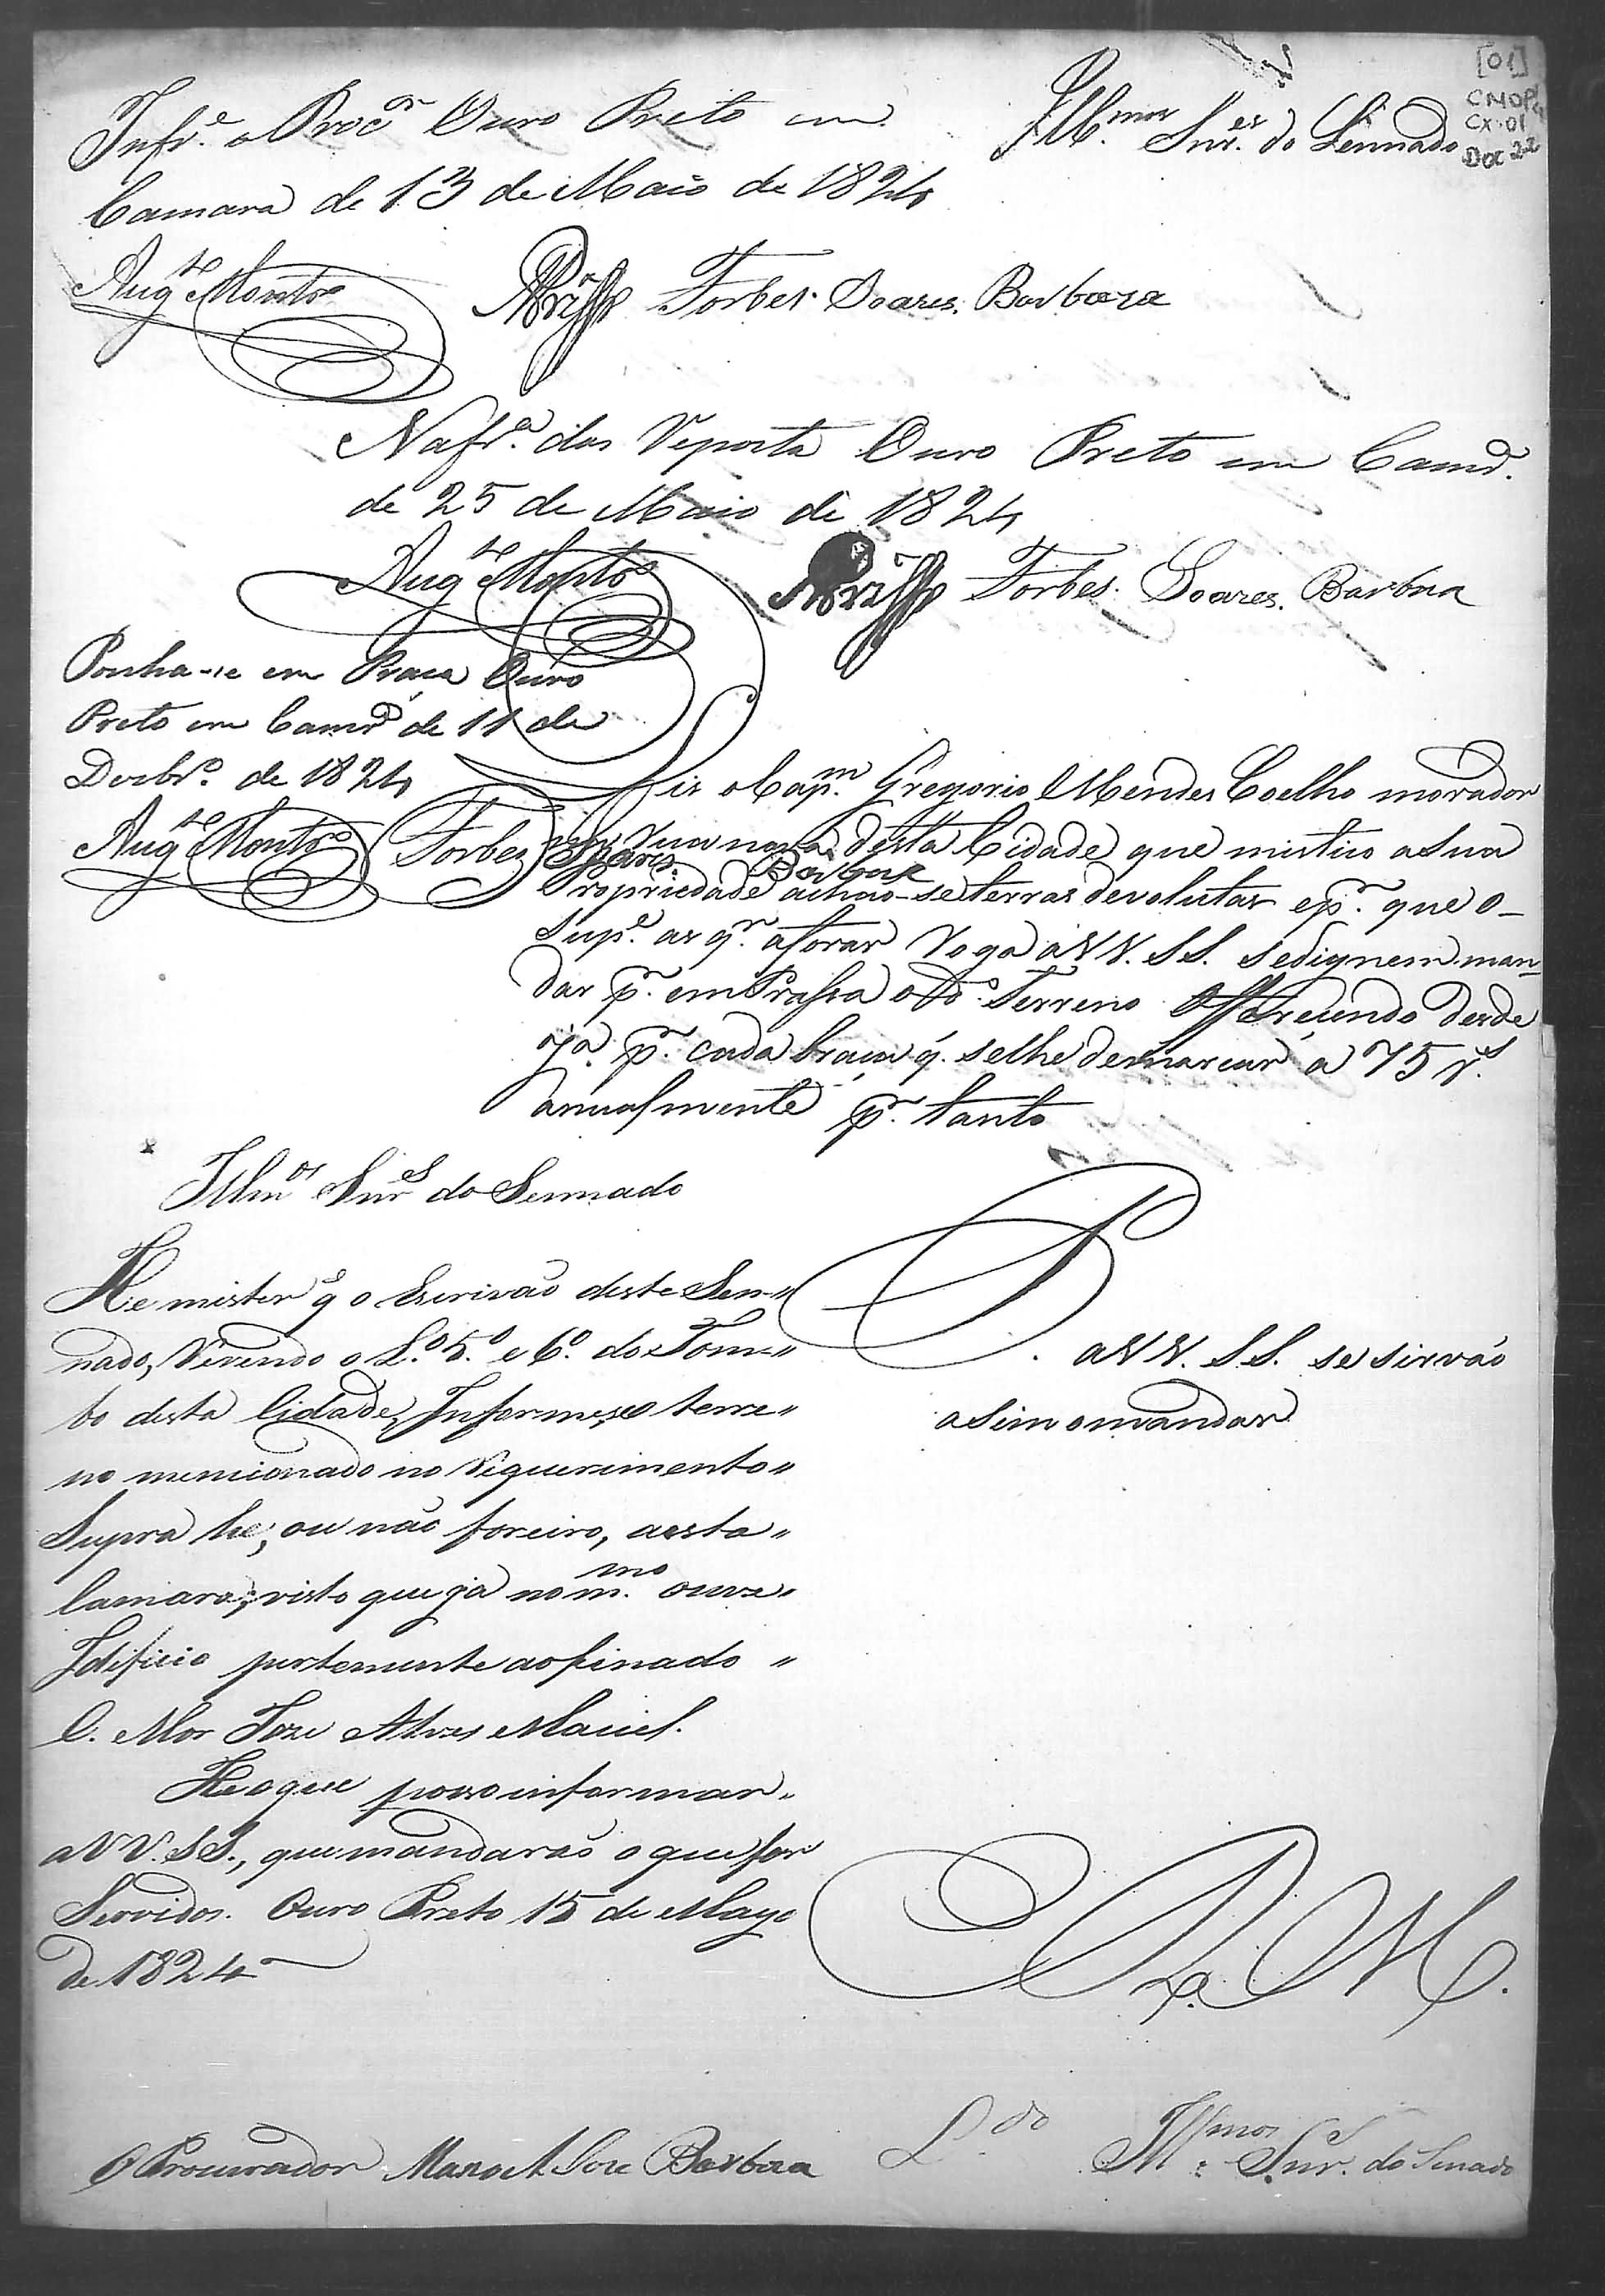 [01]
CMOP
CX. 01
Doc 22
Illmos. Snr.es do Sennado
Infr.e o Procor Ouro Preto em
Camara de 13 de Maio de 1824
Augto Montro
Forbes. Soares. Barboza
Na fr.a da Reposta Ouro Preto em Camr.a
de 25 de Maio de 1824
Augto Montro
Forbes. Soares. Barboza
Ponha-se em Praça Ouro
Preto em Camr.a de 11 de
Dezbr.o de 1824
Augto Montro Forbes Soares Barboza
Dis o Capm. Gregorio Mendes Coelho morador
na rua nova desta Cidade que mistico a sua
Propriedade achão-se terras devolutas e pr. que o
Supe. as qr. aforar Roga a VV. SS. se dignem man-
dar pr. em Prassa o do. Terreno Offerecendo desde
ja pr. cada braça q. se lhe demarcar a 75 rs.
anualmente pr. tanto
P. a VV. SS. se sirvão
asim o mandar
E. R. M.
Illmos Snrs do Sennado
He mister q o Escrivão deste Sen="
nado, Revendo o L.o 5.o e 6.o do Tom="
bo desta Cidade, Informe, se o terre"
no mencionado no Requerimento"
Supra he, ou não foreiro, a esta"
Camara; visto que ja no mmo. ouve"
Idificio pertencente ao finado "
C. Mor Joze Alves Maciel.
He o que posso informar"
a VV. SS., que mandarão o que for
Servidos. Ouro Preto 15 de Mayo
de 1824
O Procurador Manoel Joze Barboza
L.do
Illmos. Snrs. do Senado